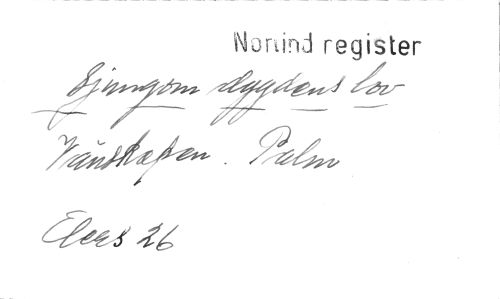 Norlind register
Sjungom dygdens lov
Vänskapen. Palm
Elers 26